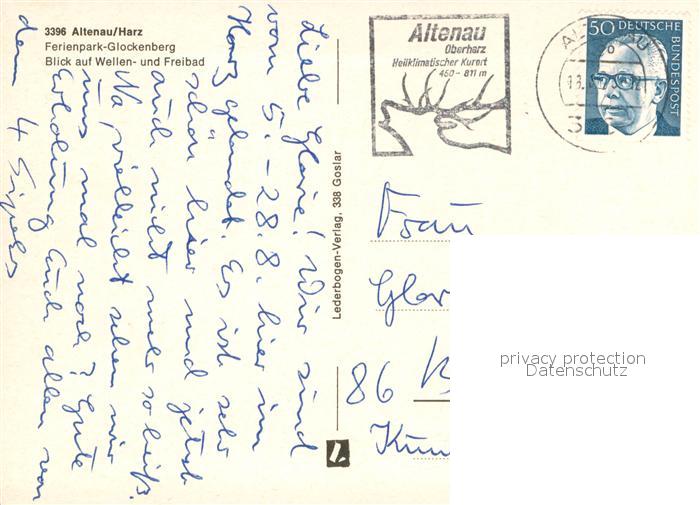 3396 Altenau/Harz
Ferienpark-Glockenberg
Blick auf Wellen- und Freibad
Liebe Glorie! Wir sind
vom 5. - 28.8. hier im
Harz gelandet. Es ist sehr
schön hier und jetzt
auch nicht mehr so heiß.
Na, vielleicht sehen wir
uns mal noch? Gute
Erholung Euch allen von
den 4
Lederbogen-Verlag, 338 Goslar
Altenau
Oberharz
Heilklimatischer Kurort
450 - 811 m
50 DEUTSCHE
BUNDESPOST
Frau
Glor
86 B
Kun
privacy protection
Datenschutz